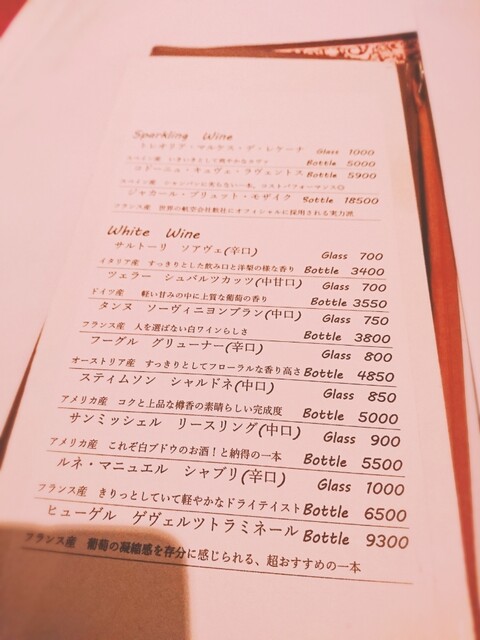 Sparkling Wine
トレオリア・マルケス・デ・レケーナ Glass 1000
スペイン産 いきいきとして爽やかなカヴァ Bottle 5000
コドーニュ・キュヴェ・ラヴェントス Bottle 5900
スペイン産 シャンパンに劣らない一本、コストパフォーマンス◎
ジャカール・ブリュット・モザイク Bottle 18500
フランス産 世界の航空会社数社にオフィシャルに採用される実力派
White Wine
サルトーリ ソアヴェ(辛口) Glass 700
イタリア産 すっきりとした飲み口と洋梨の様な香り Bottle 3400
ツェラー シュバルツカッツ(中甘口) Glass 700
ドイツ産 軽い甘みの中に上質な葡萄の香り Bottle 3550
タンヌ ソーヴィニヨンブラン(中口) Glass 750
フランス産 人を選ばない白ワインらしさ Bottle 3800
フーグル グリューナー(辛口) Glass 800
オーストリア産 すっきりとしてフローラルな香り高さ Bottle 4850
スティムソン シャルドネ(中口) Glass 850
アメリカ産 コクと上品な樽香の素晴らしい完成度 Bottle 5000
サンミッシェル リースリング(中口) Glass 900
アメリカ産 これぞ白ブドウのお酒!と納得の一本 Bottle 5500
ルネ・マニュエル シャブリ(辛口) Glass 1000
フランス産 きりっとしていて軽やかなドライテイスト Bottle 6500
ヒューゲル ゲヴェルツトラミネール Bottle 9300
フランス産 葡萄の凝縮感を存分に感じられる、超おすすめの一本